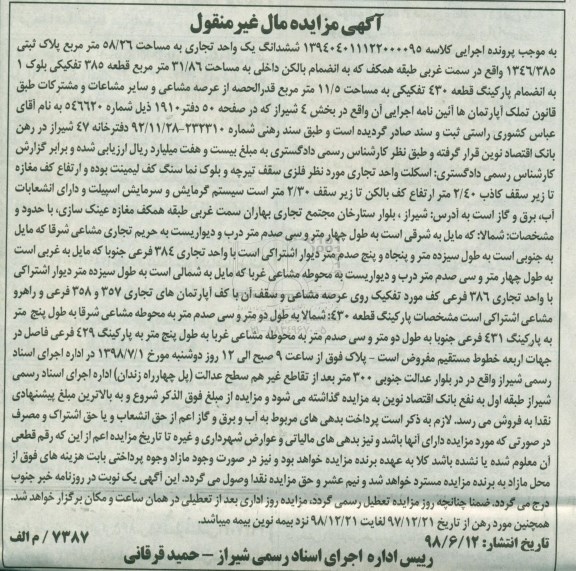 آگهی مزایده مال غیر منقول
به موجب پرونده اجرایی کلاسه ۱۳۹۴۰۴۰۱۱۱۲۲۰۰۰۰۹۵ ششدانگ یک واحد تجاری به مساحت ۵۸/۲۶ متر مربع پلاک ثبتی
۱۳۴۶/۳۸۵ واقع در سمت غربی طبقه همکف که به انضمام بالکن داخلی به مساحت ۳۱/۸۶ متر مربع قطعه ۳۸۵ تفکیکی بلوک ۱
به انضمام پارکینگ قطعه ۴۳۰ تفکیکی به مساحت ۱۱/۵ متر مربع قدرالحصه از عرصه مشاعی و سایر مشاعات و مشترکات طبق
قانون تملک آپارتمان ها آئین نامه اجرایی آن واقع در بخش ۴ شیراز که در صفحه ۵۰ دفتر ۱۹۱۰ ذیل شماره ۵۴۶۶۲۰ به نام آقای
عباس کشوری راستی ثبت و سند صادر گردیده است و طبق سند رهنی شماره ۲۳۲۳۱۰-۹۲/۱۱/۲۸ دفترخانه ۴۷ شیراز در رهن
بانک اقتصاد نوین قرار گرفته و طبق نظر کارشناس رسمی دادگستری به مبلغ بیست و هفت میلیارد ریال ارزیابی شده و برابر گزارش
کارشناس رسمی دادگستری: اسکلت واحد تجاری مورد نظر فلزی سقف تیرچه و بلوک نما سنگ کف لیمینت بوده و ارتفاع کف مغازه
تا زیر سقف کاذب ۲/۴۰ متر ارتفاع کف بالکن تا زیر سقف ۲/۳۰ متر است سیستم گرمایش و سرمایش اسپیلت و دارای انشعابات
آب، برق و گاز است به آدرس: شیراز، بلوار ستارخان مجتمع تجاری بهاران سمت غربی طبقه همکف مغازه عینک سازی، با حدود و
مشخصات: شمالا: که مایل به شرقی است به طول چهار متر و سی صدم متر درب و دیواریست به حریم تجاری مشاعی شرقا که مایل
به جنوبی است به طول سیزده متر و پنجاه و پنج صدم متر دیوار اشتراکی است با واحد تجاری ۳۸۴ فرعی جنوبا که مایل به غربی است
به طول چهار متر و سی صدم متر درب و دیواریست به محوطه مشاعی غربا که مایل به شمالی است به طول سیزده متر دیوار اشتراکی
با واحد تجاری ۳۸۶ فرعی کف مورد تفکیک روی عرصه مشاعی و سقف آن با کف آپارتمان های تجاری ۳۵۷ و ۳۵۸ فرعی و راهرو
مشاعی اشتراکی است مشخصات پارکینگ قطعه ۴۳۰: شمالا به طول دو متر و سی صدم متر به محوطه مشاعی شرقا به طول پنج متر
به پارکینگ ۴۳۱ فرعی جنوبا به طول دو متر و سی صدم متر به محوطه مشاعی غربا به طول پنج متر به پارکینگ ۴۲۹ فرعی فاصل در
جهات اربعه خطوط مستقیم مفروض است - پلاک فوق از ساعت ۹ صبح الی ۱۲ روز دوشنبه مورخ ۱۳۹۸/۷/۱ در اداره اجرای اسناد
رسمی شیراز واقع در در بلوار عدالت جنوبی ۳۰۰ متر بعد از تقاطع غیر هم سطح عدالت (پل چهارراه زندان) اداره اجرای اسناد رسمی
شیراز طبقه اول به نفع بانک اقتصاد نوین به مزایده گذاشته می شود و مزایده از مبلغ فوق الذکر شروع و به بالاترین مبلغ پیشنهادی
نقدا به فروش می رسد. لازم به ذکر است پرداخت بدهی های مربوط به آب و برق و گاز اعم از حق انشعاب و یا حق اشتراک و مصرف
در صورتی که مورد مزایده دارای آنها باشد و نیز بدهی های مالیاتی و عوارض شهرداری و غیره تا تاریخ مزایده اعم از این که رقم قطعی
آن معلوم شده یا نشده باشد کلا به عهده برنده مزایده خواهد بود و نیز در صورت وجود مازاد وجوه پرداختی بابت هزینه های فوق از
محل مازاد به برنده مزایده مسترد خواهد شد و نیم عشر و حق مزایده نقدا وصول می گردد. این آگهی یک نوبت در روزنامه خبر جنوب
درج می گردد. ضمنا چنانچه روز مزایده تعطیل رسمی گردد، مزایده روز اداری بعد از تعطیلی در همان ساعت و مکان برگزار خواهد شد.
همچنین مورد رهن از تاریخ ۹۷/۱۲/۲۱ لغایت ۹۸/۱۲/۲۱ نزد بیمه نوین بیمه میباشد.
تاریخ انتشار: ۹۸/۶/۱۲
۷۳۸۷/م الف
رییس اداره اجرای اسناد رسمی شیراز - حمید فرقانی